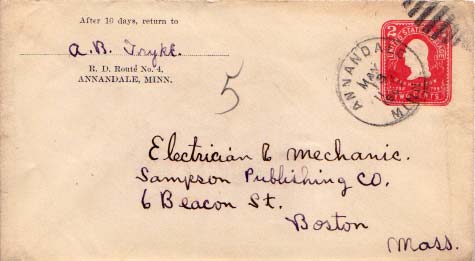 After 10 days, return to
A. B. Tryke.
R. D. Route No. 4,
ANNANDALE, MINN.
5
2
UNITED STATES POSTAGE
TWO CENTS
ANNANDALE
MAY
MINN
Electrician & Mechanic.
Sampson Publishing Co.
6 Beacon St.
Boston
Mass.